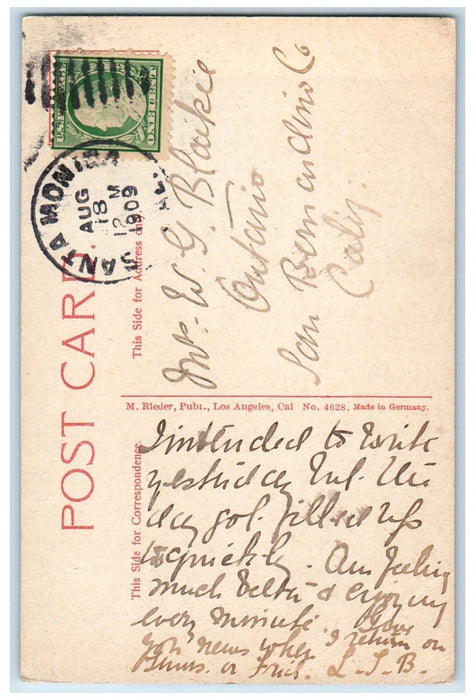 U.S. POSTAGE
ONE CENT
SANTA MONICA
AUG
18
12 M
1909
CAL.
POST CARD.
This Side for Address only
Mr. W. G. Blaikie
Ontario
San Bernardino Co
Calif.
M. Rieder, Publ., Los Angeles, Cal No. 4628. Made in Germany.
This Side for Correspondence
I intended to write
yesterday but the
day got filled up
so quickly. Am feeling
much better & enjoying
every minute. Give
you news when I return on
Thurs. or Frid. L.S.B.